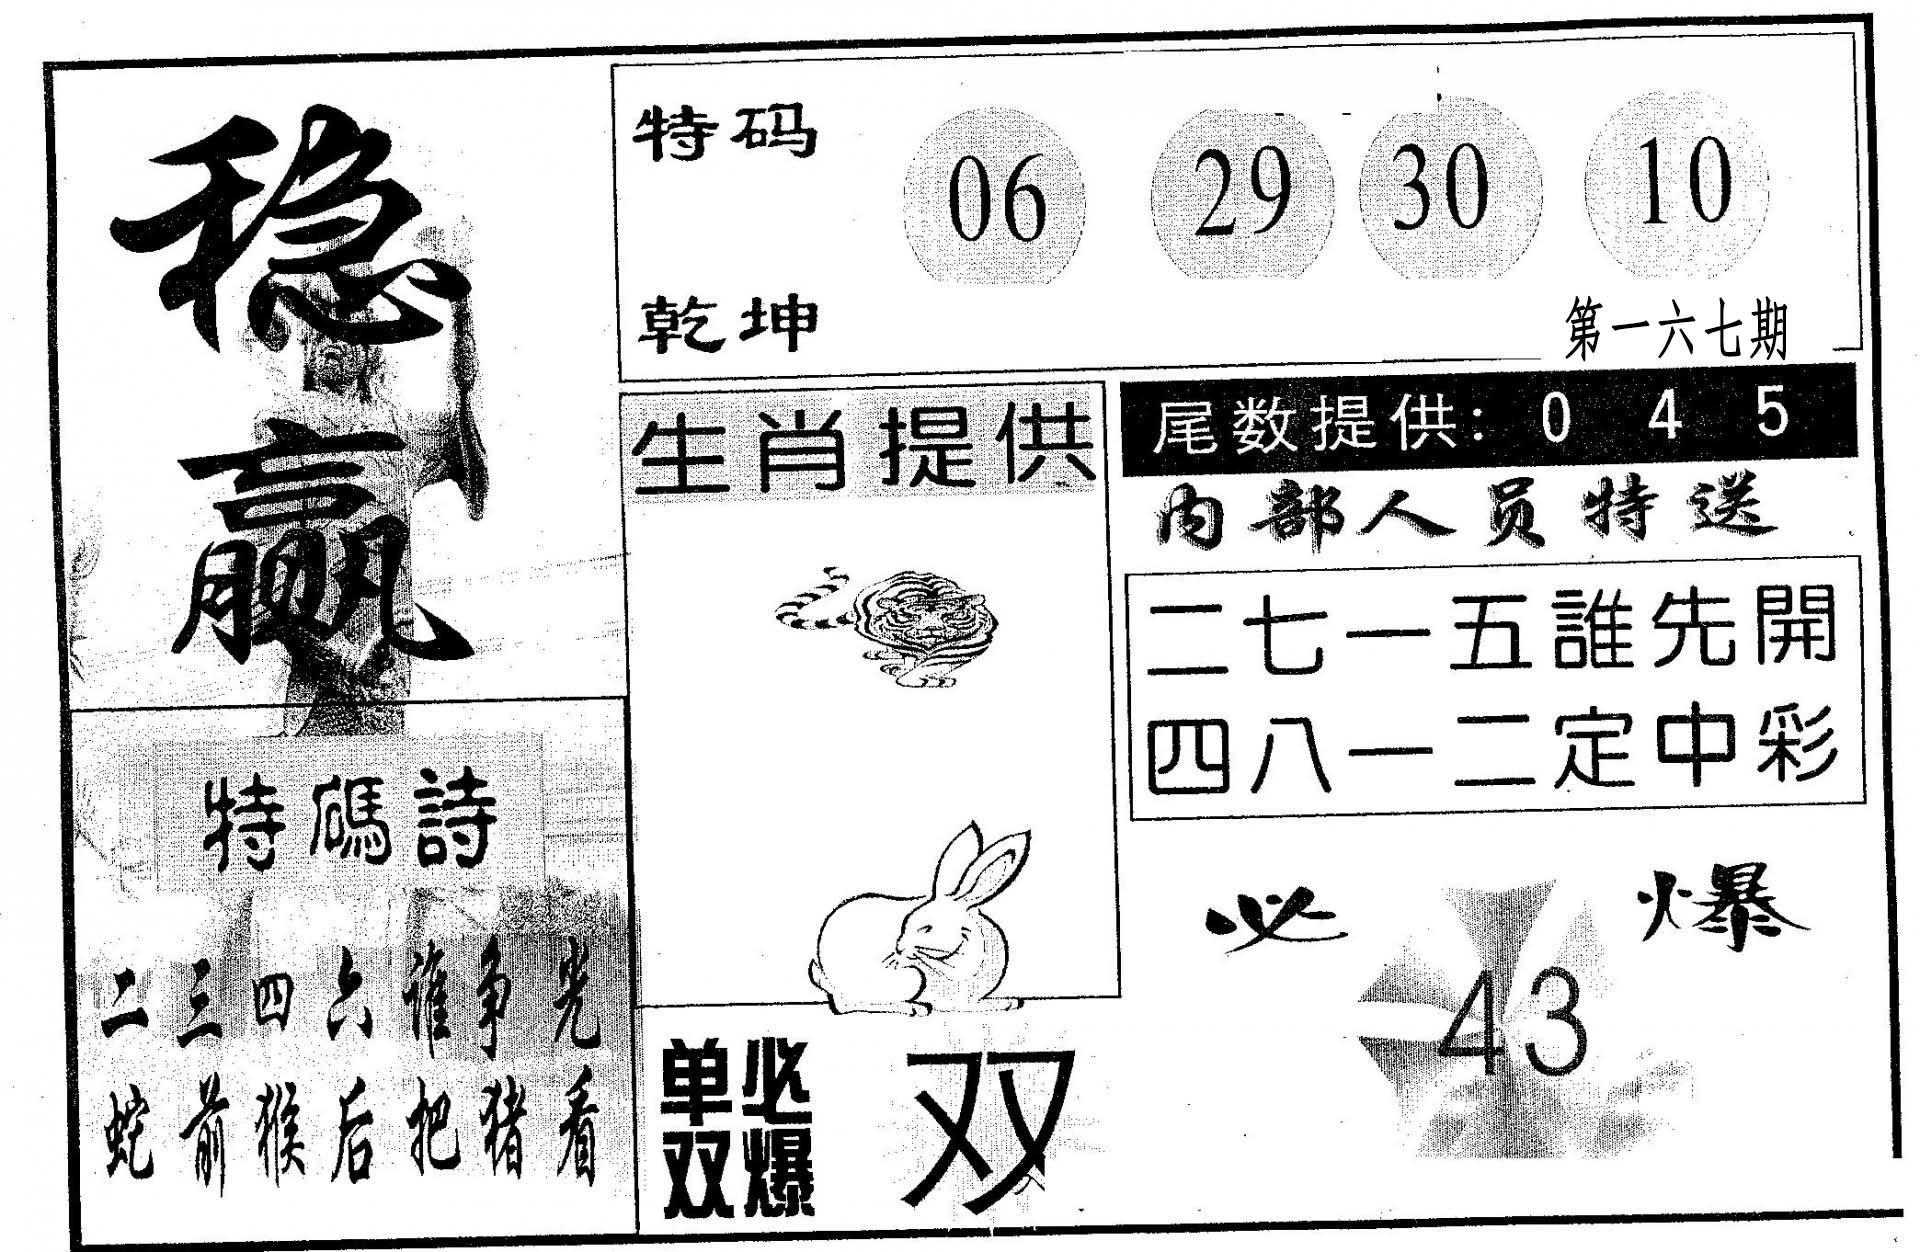 稳
赢
特码
06 29 30 10
乾坤
第一六七期
生肖提供
尾数提供: 0 4 5
内部人员特送
二七一五誰先開
四八一二定中彩
特碼詩
二三四六谁争光
蛇前猴后把猪看
单双
必爆
双
必爆
43